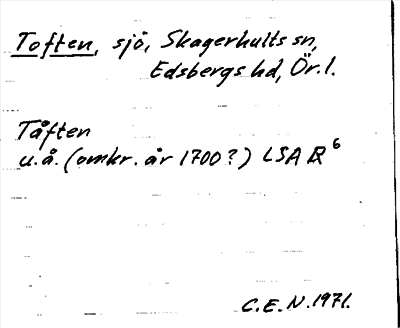 Toften, sjö, Skagerhults sn,
Edsbergs hd, Ör. l.
Tåften
u.å. (omkr. år 1700?) LSA R 6
C.E.N. 1971.